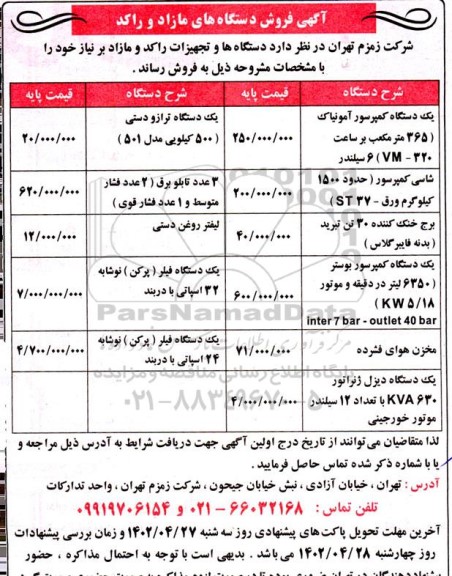 آگهی فروش دستگاه های مازاد و راکد
شرکت زمزم تهران در نظر دارد دستگاه ها و تجهیزات راکد و مازاد بر نیاز خود را
با مشخصات مشروحه ذیل به فروش رساند .
شرح دستگاه قیمت پایه شرح دستگاه قیمت پایه
یک دستگاه کمپرسور آمونیاک
( ۳۶۵ متر مکعب بر ساعت
۳۲۰ - VM ) ۶ سیلندر
۲۵۰/۰۰۰/۰۰۰
یک دستگاه ترازو دستی
( ۵۰۰ کیلویی مدل ۵۰۱ )
۲۰/۰۰۰/۰۰۰
شاسی کمپرسور ( حدود ۱۵۰۰
کیلوگرم ورق - ST ۳۷ )
۲۰۰/۰۰۰/۰۰۰
۳ عدد تابلو برق ( ۲ عدد فشار
متوسط و ۱ عدد فشار قوی )
۶۲۰/۰۰۰/۰۰۰
برج خنک کننده ۳۰ تن تبرید
( بدنه فایبرگلاس )
۴۰/۰۰۰/۰۰۰
لیفتر روغن دستی
۱۲/۰۰۰/۰۰۰
یک دستگاه کمپرسور بوستر
( ۶۳۵۰ لیتر در دقیقه و موتور
( KW ۵/۱۸
inter 7 bar - outlet 40 bar
۶۰۰/۰۰۰/۰۰۰
یک دستگاه فیلر ( پرکن ) نوشابه
۳۲ اسپاتی با دربند
۷/۰۰۰/۰۰۰/۰۰۰
مخزن هوای فشرده
۷۱/۰۰۰/۰۰۰
یک دستگاه فیلر ( پرکن ) نوشابه
۲۴ اسپاتی با دربند
۴/۷۰۰/۰۰۰/۰۰۰
یک دستگاه دیزل ژنراتور
۶۳۰ KVA با تعداد ۱۲ سیلندر
موتور خورجینی
۴/۰۰۰/۰۰۰/۰۰۰
ParsNamadData
پایگاه اطلاع رسانی مناقصه و مزایده
لذا متقاضیان می توانند از تاریخ درج اولین آگهی جهت دریافت شرایط به آدرس ذیل مراجعه و
یا با شماره ذکر شده تماس حاصل فرمایید .
آدرس : تهران ، خیابان آزادی ، نبش خیابان جیحون ، شرکت زمزم تهران ، واحد تدارکات
تلفن تماس : ۶۶۰۳۲۱۶۸ - ۰۲۱ و ۰۹۹۱۹۷۰۶۱۵۴
آخرین مهلت تحویل پاکت های پیشنهادی روز سه شنبه ۱۴۰۲/۰۴/۲۷ و زمان بررسی پیشنهادات
روز چهارشنبه ۱۴۰۲/۰۴/۲۸ می باشد . بدیهی است با توجه به احتمال مذاکره ، حضور